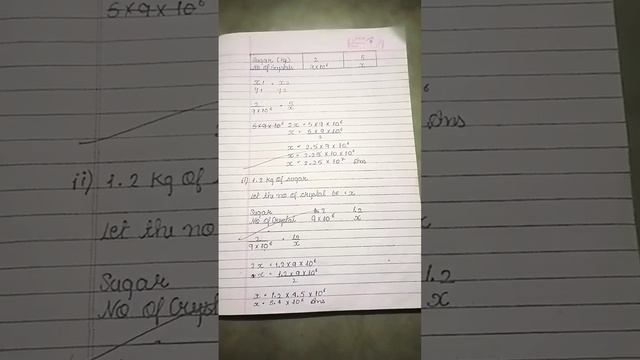 Sugar (Kg) 2 5
No of Crystals 9×10⁶ x
x₁ = x₂
y₁ y₂
2 = 5
9×10⁶ x
5×9×10⁶ 2x = 5×9×10⁶
x = 5×9×10⁶
2
x = 2.5×9×10⁶
x = 2.25×10×10⁶
x = 2.25×10⁷ Ans
ii) 1.2 Kg of sugar
Let the no of crystal be = x
Sugar 2 1.2
No of Crystal 9×10⁶ x
2 = 1.2
9×10⁶ x
2x = 1.2×9×10⁶
x = 1.2×9×10⁶
2
x = 1.2×4.5×10⁶
x = 5.4×10⁶ Ans
5×9×10⁶
ii) 1.2 Kg of
Let the no
Sugar
No of Cryst
Ans
1.2
x